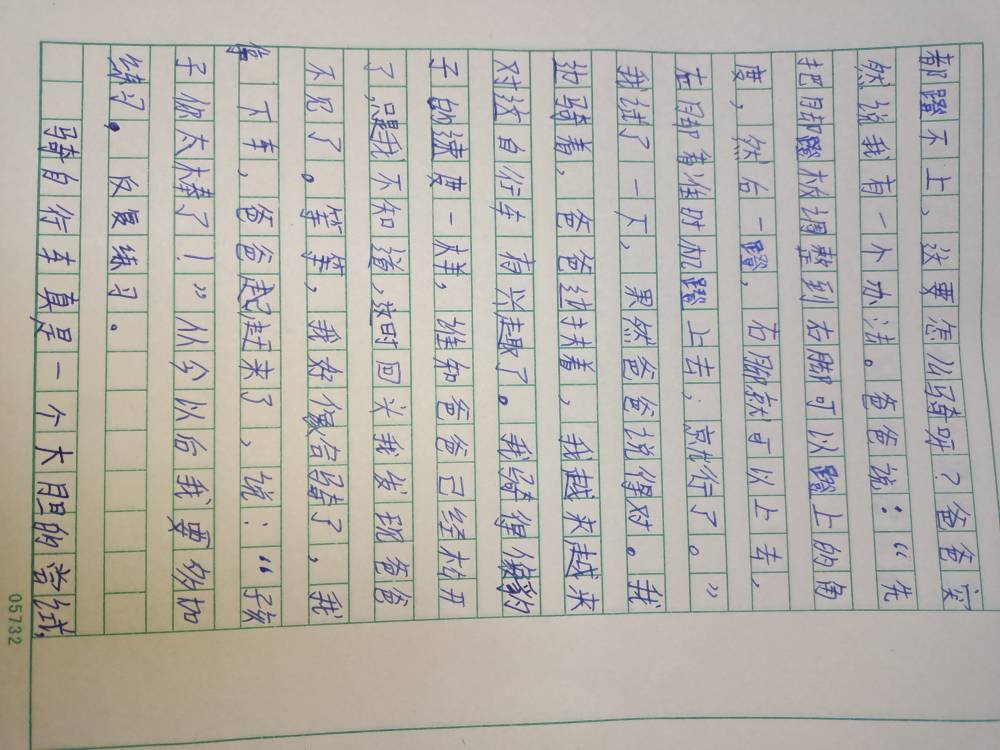 都蹬不上，这要怎么骑呀？爸爸突
然说我有一个办法。爸爸说：“先
把脚蹬板调整到右脚可以蹬上的角
度，然后一蹬，右脚就可以上去，
左脚看准时机蹬上去，就行了。”
我试了一下，果然爸爸说得对。我
边骑着，爸爸边扶着，我越来越来
对这自行车有兴趣了。我骑得像豹
子的速度一样，谁知爸爸已经松开
了，只是我不知道，这时回头我发现爸爸
不见了。等等，我好像会骑了，我
停下车，爸爸赶过来了，说：“孩
子你太棒了！”从今以后我要多加
练习，反复练习。
骑自行车真是一个大胆的尝试，
05732